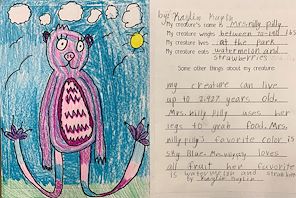 by: Kaylin
My creature's name is Mrs. nilly pilly
My creature weighs between 70-140 lbs
My creature lives at the park
My creature eats watermelon and
strawberries
Some other things about my creature
my creature can live
up to 2,927 years old.
Mrs. nilly pilly uses her
legs to grab food. Mrs.
nilly pilly's favorite color is
sky Blue. loves
all fruit her favorite
is watermelon and
by Kaylin